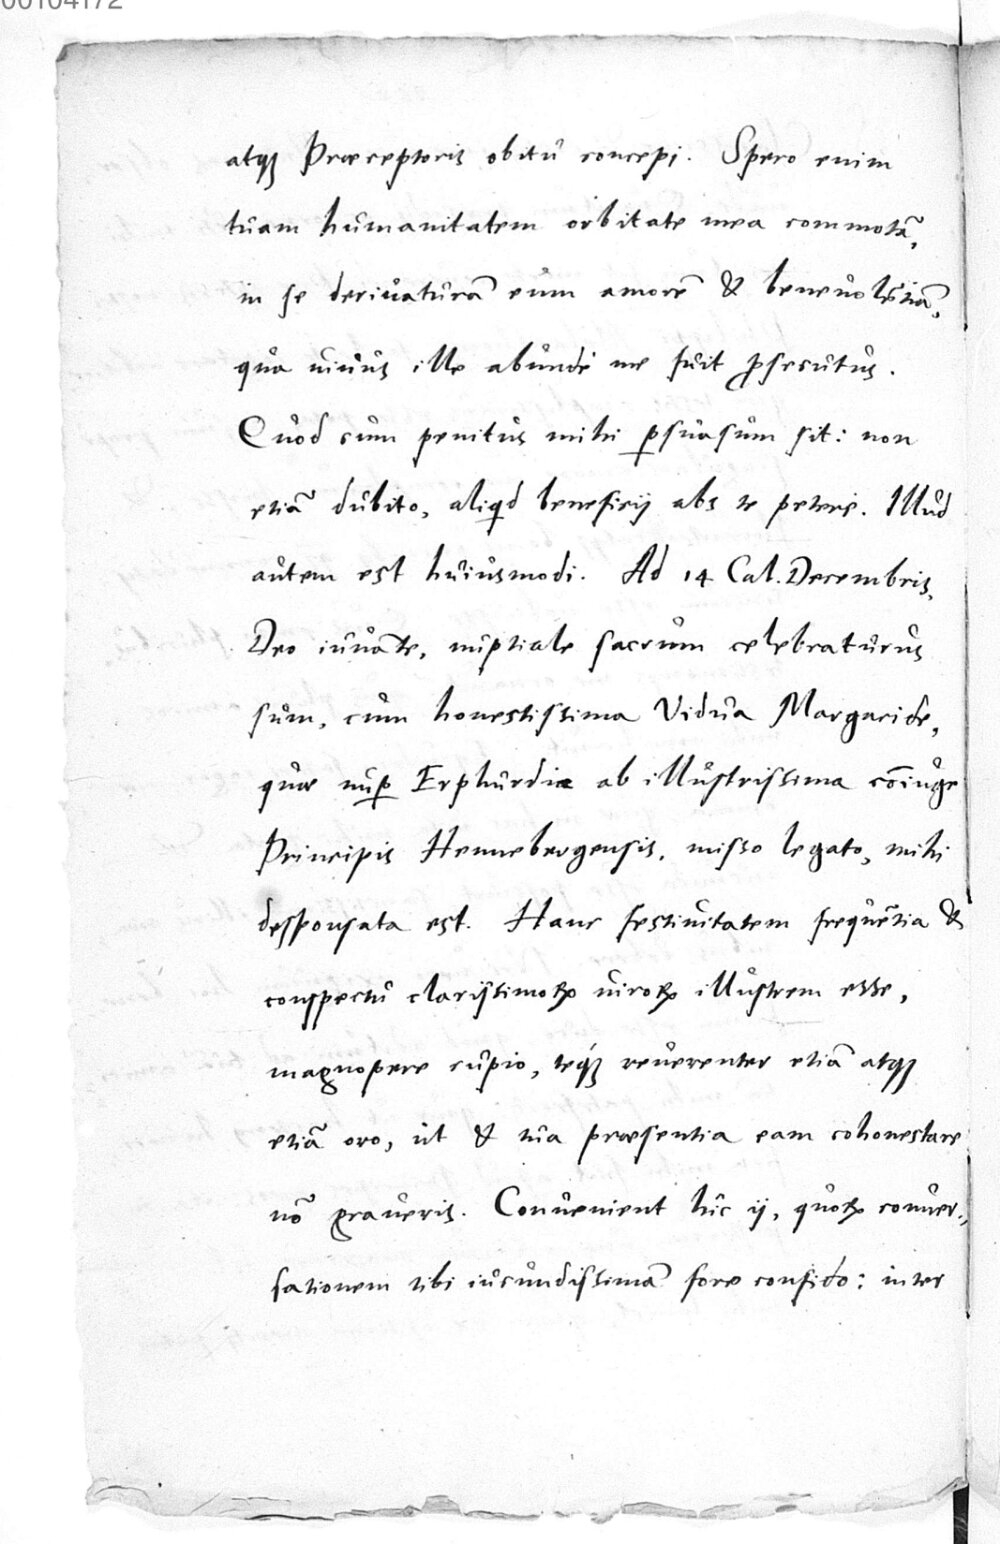 00104172
atq; Præceptoris obitu concepi. Spero enim
tuam humanitatem orbitate mea commotā,
in se deriuaturā eum amorē & beneuolētiā,
qua uiuus ille abunde me fuit ꝓsecutus.
Quod cum penitus mihi ꝑsuasum sit: non
etiā dubito, aliqd beneficij abs te petere. Illud
autem est huiusmodi. Ad 14 Cal. Decembris,
Deo iuuāte, nuptiale sacrum celebraturus
sum, cum honestissima Vidua Margaride,
quæ nuꝑ Erphurdiæ ab illustrissima cōiuge
Principis Hennebergensis, misso legato, mihi
desponsata est. Hanc festiuitatem frequētia &
conspectu clarissimoꝝ uiroꝝ illustrem esse,
magnopere cupio, teq́; reuerenter etiā atq;
etiā oro, ut & tua præsentia eam cohonestare
nō graueris. Conuenient huc ij, quoꝝ conuer-
sationem tibi iucundissimā fore confido: inter